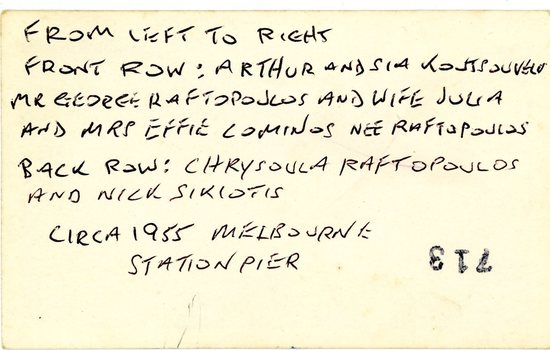 FROM LEFT TO RIGHT
FRONT ROW: ARTHUR AND SIA KOUTSOUVELU
MR GEORGE RAFTOPOULOS AND WIFE JULIA
AND MRS EFFIE COMINOS NEE RAFTOPOULOS
BACK ROW: CHRYSOULA RAFTOPOULOS
AND NICK SIKIOTIS
CIRCA 1955 MELBOURNE
STATION PIER
713